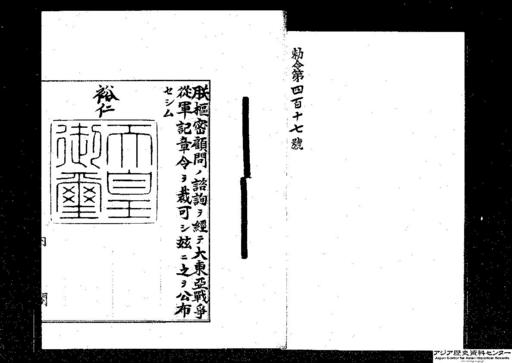 勅令第四百十七號
朕樞密顧問ノ諮詢ヲ經テ大東亞戰爭
從軍記章令ヲ裁可シ玆ニ之ヲ公布
セシム
裕仁
天皇
御璽
内閣
アジア歴史資料センター
Japan Center for Asian Historical Records